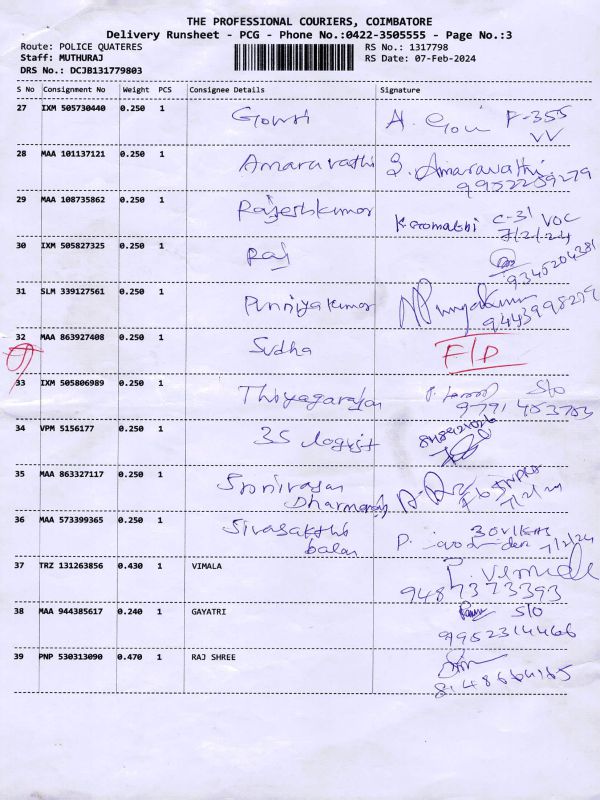 THE PROFESSIONAL COURIERS, COIMBATORE
Delivery Runsheet - PCG - Phone No.:0422-3505555 - Page No.:3
Route: POLICE QUATERES RS No.: 1317798
Staff: MUTHURAJ RS Date: 07-Feb-2024
DRS No.: DCJB131779803
S No Consignment No Weight PCS Consignee Details Signature
27 IXM 505730440 0.250 1 Gowri A. Gowri F-355
VV
28 MAA 101137121 0.250 1 Amaravathi S. Amaravathi
9952259279
29 MAA 108735862 0.250 1 Rajeshkumar Karomathi C-31 VOC
7/2/24
30 IXM 505827325 0.250 1 Raj
9345204381
31 SLM 339127561 0.250 1 Punniyakumar
9443998279
32 MAA 863927408 0.250 1 Sudha F/D
33 IXM 505806989 0.250 1 Thiyagarajan S/o
9791453753
34 VPM 5156177 0.250 1 3S logist
35 MAA 863327117 0.250 1 Srinivasan
Dharmaraj 7/2/24
36 MAA 573399365 0.250 1 Sivasakthi
balan P. 7/2/24
37 TRZ 131263856 0.430 1 VIMALA P. Vimala
9487373393
38 MAA 944385617 0.240 1 GAYATRI S/o
9952314466
39 PNP 530313090 0.470 1 RAJ SHREE
8148664165